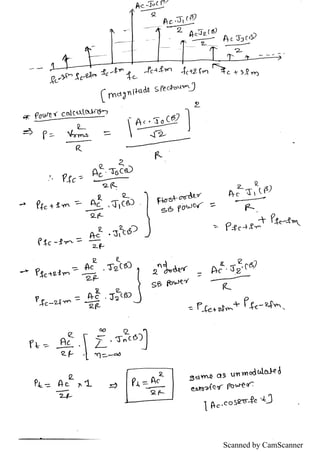 Ac.J0(β)
2
Ac.J1(β)
2
Ac J2(β)
2
Ac J3(β)
2
fc-3fm fc-2fm fc-fm fc fc+fm fc+2fm fc+3fm
[magnitude spectrum]
* Power calculation
⇒ P = V²rms / R = [Ac.J0(β) / √2]² / R
∴ Pfc = Ac².J0²(β) / 2R
→ Pfc+fm = Ac²/2R .J1²(β)
Pfc-fm = Ac²/2R .J1²(β)
First order SB power = Ac² J1²(β) / R
= Pfc+fm + Pfc-fm
→ Pfc+2fm = Ac²/2R .J2²(β)
Pfc-2fm = Ac²/2R .J2²(β)
2nd order SB Power = Ac².J2²(β) / R
= Pfc+2fm + Pfc-2fm
Pt = Ac²/2R . [∞ Σ n=-∞ .Jn²(β)]
Pt = Ac²/2R × 1 ⇒ Pt = Ac²/2R
same as unmodulated
carrier power.
[Ac.cos2π.fc t]
Scanned by CamScanner